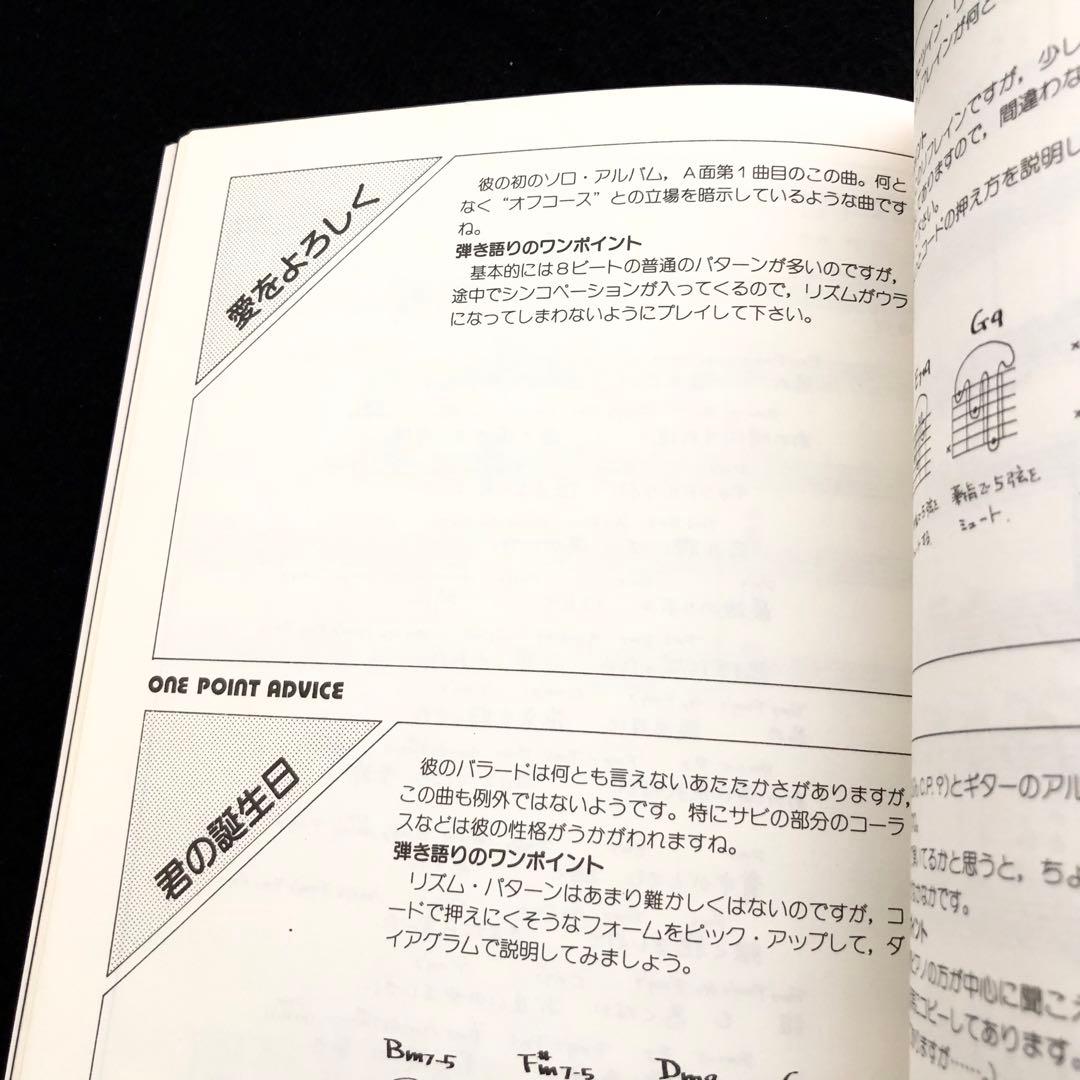 愛をよろしく
彼の初のソロ・アルバム，A面第1曲目のこの曲。何と
なく“オフコース”との立場を暗示しているような曲です
ね。
弾き語りのワンポイント
基本的には8ビートの普通のパターンが多いのですが，
途中でシンコペーションが入ってくるので，リズムがウラ
になってしまわないようにプレイして下さい。
ONE POINT ADVICE
君の誕生日
彼のバラードは何とも言えないあたたかさがありますが，
この曲も例外ではないようです。特にサビの部分のコーラ
スなどは彼の性格がうかがわれますね。
弾き語りのワンポイント
リズム・パターンはあまり難かしくはないのですが，コ
ードで押えにくそうなフォームをピック・アップして，ダ
イアグラムで説明してみましょう。
Bm7-5 F#m7-5 Dm9
リフレインですが，少し
ありますので，間違わな
さい。
コードの押え方を説明し
G9
薬指で5弦を
ミュート．
C.P.?)とギターのアル
てるかと思うと，ちょ
なかなかです。
ピアノの方が中心に聞こえ
にコピーしてあります。
りますが……。)